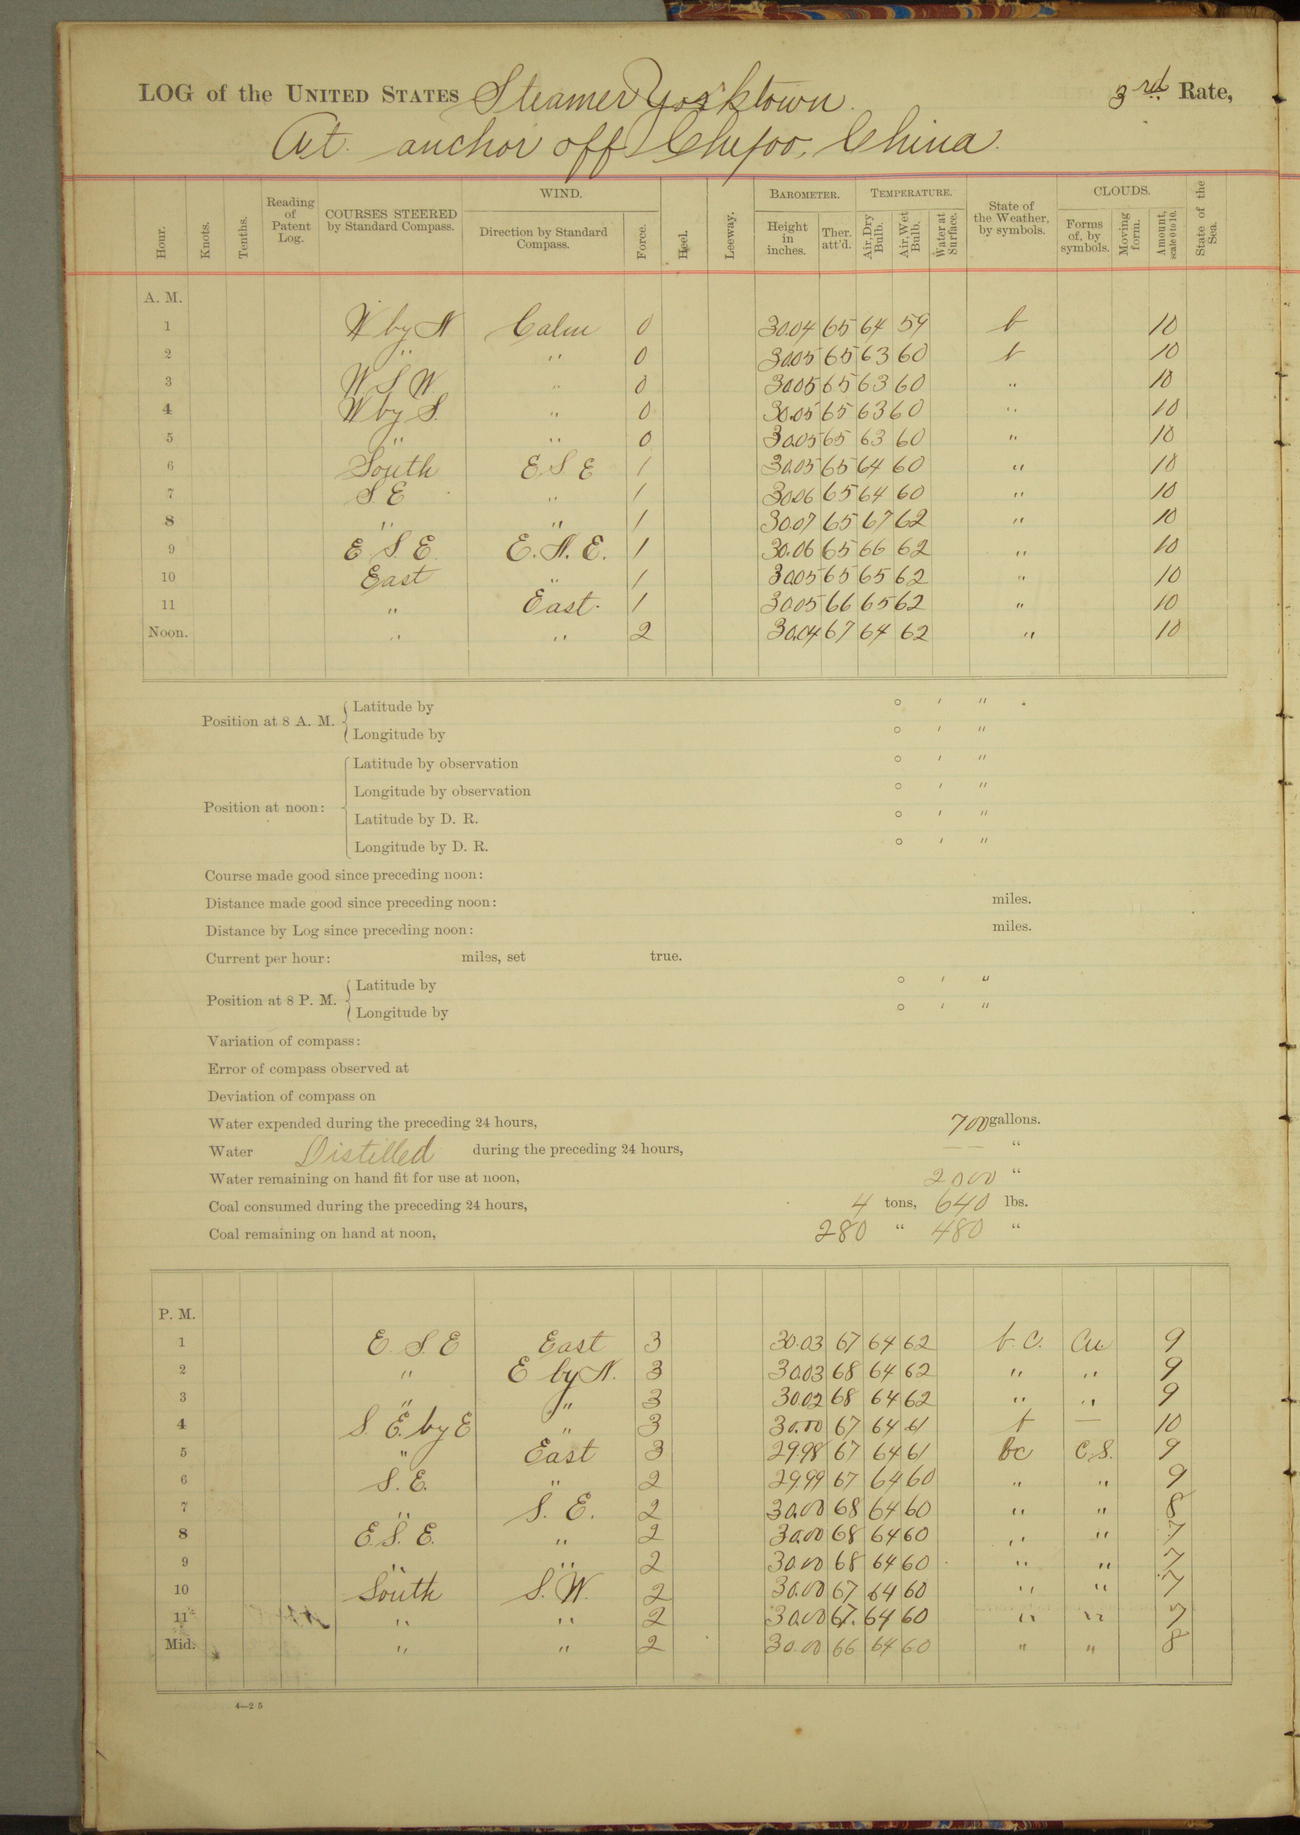 LOG of the UNITED STATES Steamer Yorktown. 3rd. Rate,
At anchor off Chefoo, China.
Hour. Knots. Tenths. Reading of Patent Log. COURSES STEERED by Standard Compass. WIND. Direction by Standard Compass. Force. Heel. Leeway. BAROMETER. Height in inches. Ther. att'd. TEMPERATURE. Air, Dry Bulb. Air, Wet Bulb. Water at Surface. State of the Weather, by symbols. CLOUDS. Forms of, by symbols. Moving form. Amount, scale 0 to 10. State of the Sea.
A. M.
1 W by N Calm 0 30.04 65 64 59 b 10
2 " " 0 30.05 65 63 60 b 10
3 W S W " 0 30.05 65 63 60 " 10
4 W by S. " 0 30.05 65 63 60 " 10
5 " " 0 30.05 65 63 60 " 10
6 South E S E 1 30.05 65 64 60 " 10
7 S. E " 1 30.06 65 64 60 " 10
8 " " 1 30.07 65 67 62 " 10
9 E S. E. E. N. E. 1 30.06 65 66 62 " 10
10 East " 1 30.05 65 65 62 " 10
11 " East. 1 30.05 66 65 62 " 10
Noon. " " 2 30.04 67 64 62 " 10
Position at 8 A. M. Latitude by ° ′ ″
Longitude by ° ′ ″
Position at noon: Latitude by observation ° ′ ″
Longitude by observation ° ′ ″
Latitude by D. R. ° ′ ″
Longitude by D. R. ° ′ ″
Course made good since preceding noon:
Distance made good since preceding noon: miles.
Distance by Log since preceding noon: miles.
Current per hour: miles, set true.
Position at 8 P. M. Latitude by ° ′ ″
Longitude by ° ′ ″
Variation of compass:
Error of compass observed at
Deviation of compass on
Water expended during the preceding 24 hours, 700 gallons.
Water Distilled during the preceding 24 hours, — "
Water remaining on hand fit for use at noon, 2000 "
Coal consumed during the preceding 24 hours, 4 tons, 640 lbs.
Coal remaining on hand at noon, 280 " 480 "
P. M.
1 E S. E East 3 30.03 67 64 62 b. c. Cu 9
2 " E by N. 3 30.03 68 64 62 " " 9
3 " " 3 30.02 68 64 62 " " 9
4 S. E. by E " 3 30.00 67 64 61 b — 10
5 " East 3 29.98 67 64 61 bc C.S. 9
6 S. E. " 2 29.99 67 64 60 " " 9
7 " S. E. 2 30.00 68 64 60 " " 8
8 E S. E. " 2 30.00 68 64 60 " " 7
9 " " 2 30.00 68 64 60 " " 7
10 South S. W. 2 30.00 67 64 60 " " 7
11 " " 2 30.00 67. 64 60 " " 7
Mid. " " 2 30.00 66 64 60 " " 8
4—25